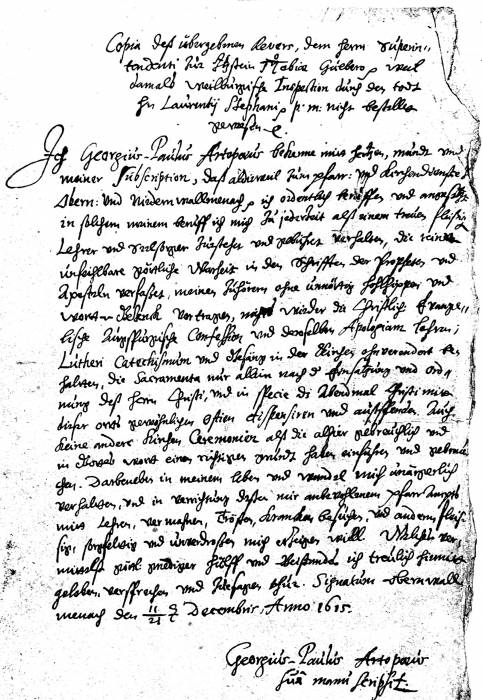 Copia deß übergebenen Revers, dem Herrn Superin-
tendenti zur Itzstein M. Tobiae Güebero, weil
damals Weilburgische Inspection durch den todt
Hn Laurentij Stephani, p. m. nicht bestellet
gewesen.
Ich Georgius-Paulus Artopaeus bekenne mit hertzen, mundt und
meiner Subscription, daß alldieweil zum pfarr: und Kirchendienste
Obern: und Niedernwallmenach, ich ordentlich beruffen und angesetzt
in solchem meinem beruff ich mich zu jederzeit als einem treuen fleissigen
Lehrer und Seelsorger zustehet und gebühret verhalten, die reine
unfehlbare göttliche Warheit in den Schrifften der Propheten und
Aposteln verfasset, meinen Zuhörern ohne unnöthig und
wort vortragen, nichts wieder die Christlich Evange-
lische Augspurgische Confession und derselben Apologiam lehren;
Lutheri Catechismum und Gesäng in der Kirchen ohnverendert be-
halten, die Sacramenta nur allein nach der Einsatzung und ord-
nung deß Herrn Christi, und in specie das Abendmal Christi mit
dieser orts gewöhnlichen Ostien dispensiren und außspenden, Auch
keine andere Kirchen Ceremonien als die alhier gebreuchlich und
in Gottes wort einen richtigen grundt haben einführen und gebrau-
chen. Darbeneben in meinem leben und wandel mich unärgerlich
verhalten, und in verrichtung dieses mir anbefohlenen pfarr Ampts
mit Lehren, vermahnen, Trösten, Krancken besuchen, und anderm, fleis-
sig, sorgfeltig und unverdrossen mich erzeigen will. Welches ver-
mittelst göttlicher Hülff und Beistandts ich treulich hiemit
geloben, versprechen und zusagen thue. Signatum obernwall-
menach den 11/21 Decembris, Anno 1615.
Georgius-Paulus Artopaeus
sua manu scripsit.